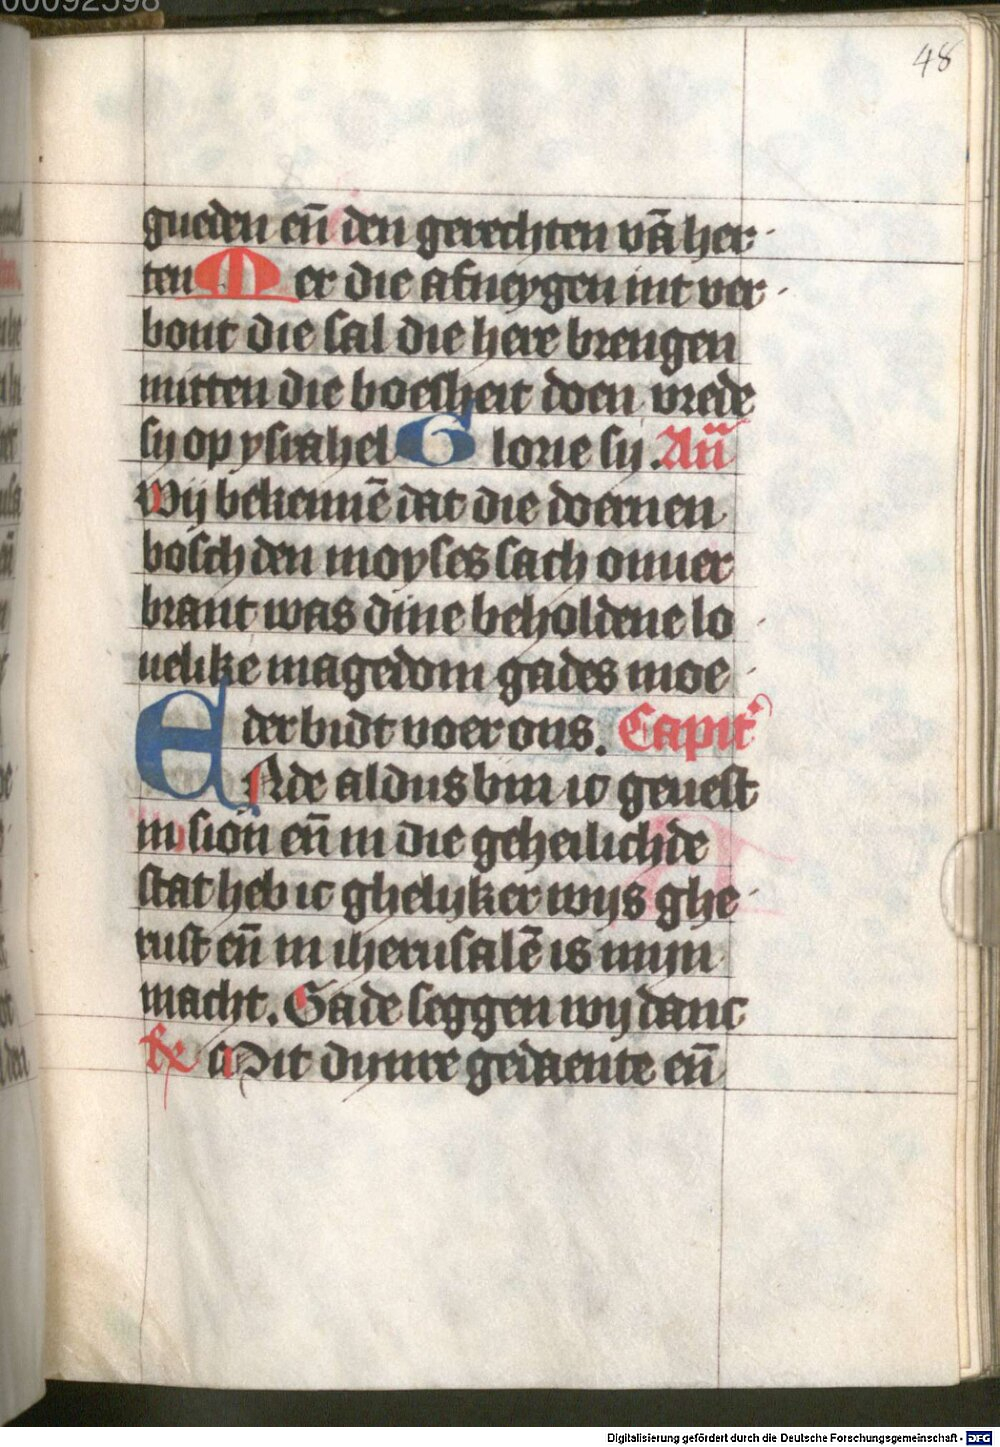 00092598
48
gueden en̄ den gerechten vā her
ten Mer die afneygen int ver
bont die sal die here brengen
mitten die boesheit doen vrede
sy op ysrahel Glorie sy. An̄
Wij bekennē dat die doernen
bosch den moyses sach onuer
brant was dine beholdene lo
uelike magedom gades moe
der bidt voer ons. Capit'
ENde aldus bin ic geuest
in sion en̄ in die geheilichde
stat heb ic ghelijker wijs ghe
rust en̄ in iherusalē is mijn
macht. Gade seggen wij danc
℟ Mit dijnre gedaente en̄
Digitalisierung gefördert durch die Deutsche Forschungsgemeinschaft - DFG